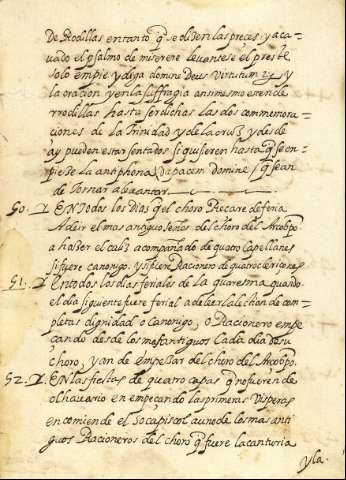 De Rodillas entanto q̃ se dizen las preces y aca-
vado el psalmo de miserere levantese el preste
solo empie y diga domine Deus Virtutum &y
la oracion y en la suffragia ansimismo esten de
rrodillas hasta ser dichas las dos commemora-
ciones de la Trinidad y de la cruz y desde
ay pueden estar sentados si quisieren hasta q̃ se em-
pieze la antiphona Da pacem domine q̃ sean
de tornar a levantar
50. EN todos los dias q̃ el choro Recare de feria
A de ir el mas antiguo señor del choro del Arçobpo
a hazer el caliz acompañado de quatro Capellanes
si fuere canonigo. y si fuere Racionero de quatro clerizones
51. EN todos los dias feriales de la quaresma quando
el dia siguiente fuere ferial a de leer la lection de com-
pletas dignidad o canonigo, o Racionero empe
çando desde los mas antiguos Cada dia de su
choro, y an de empesar del choro del Arçobpo.
52. EN las fiestas de quatro capas q̃ no fueren de
olhavario en empeçando las primeras Visperas
encomiende el Socapiscol a uno de los mas anti
guos Racioneros del choro q̃ fuere la canturia
y la